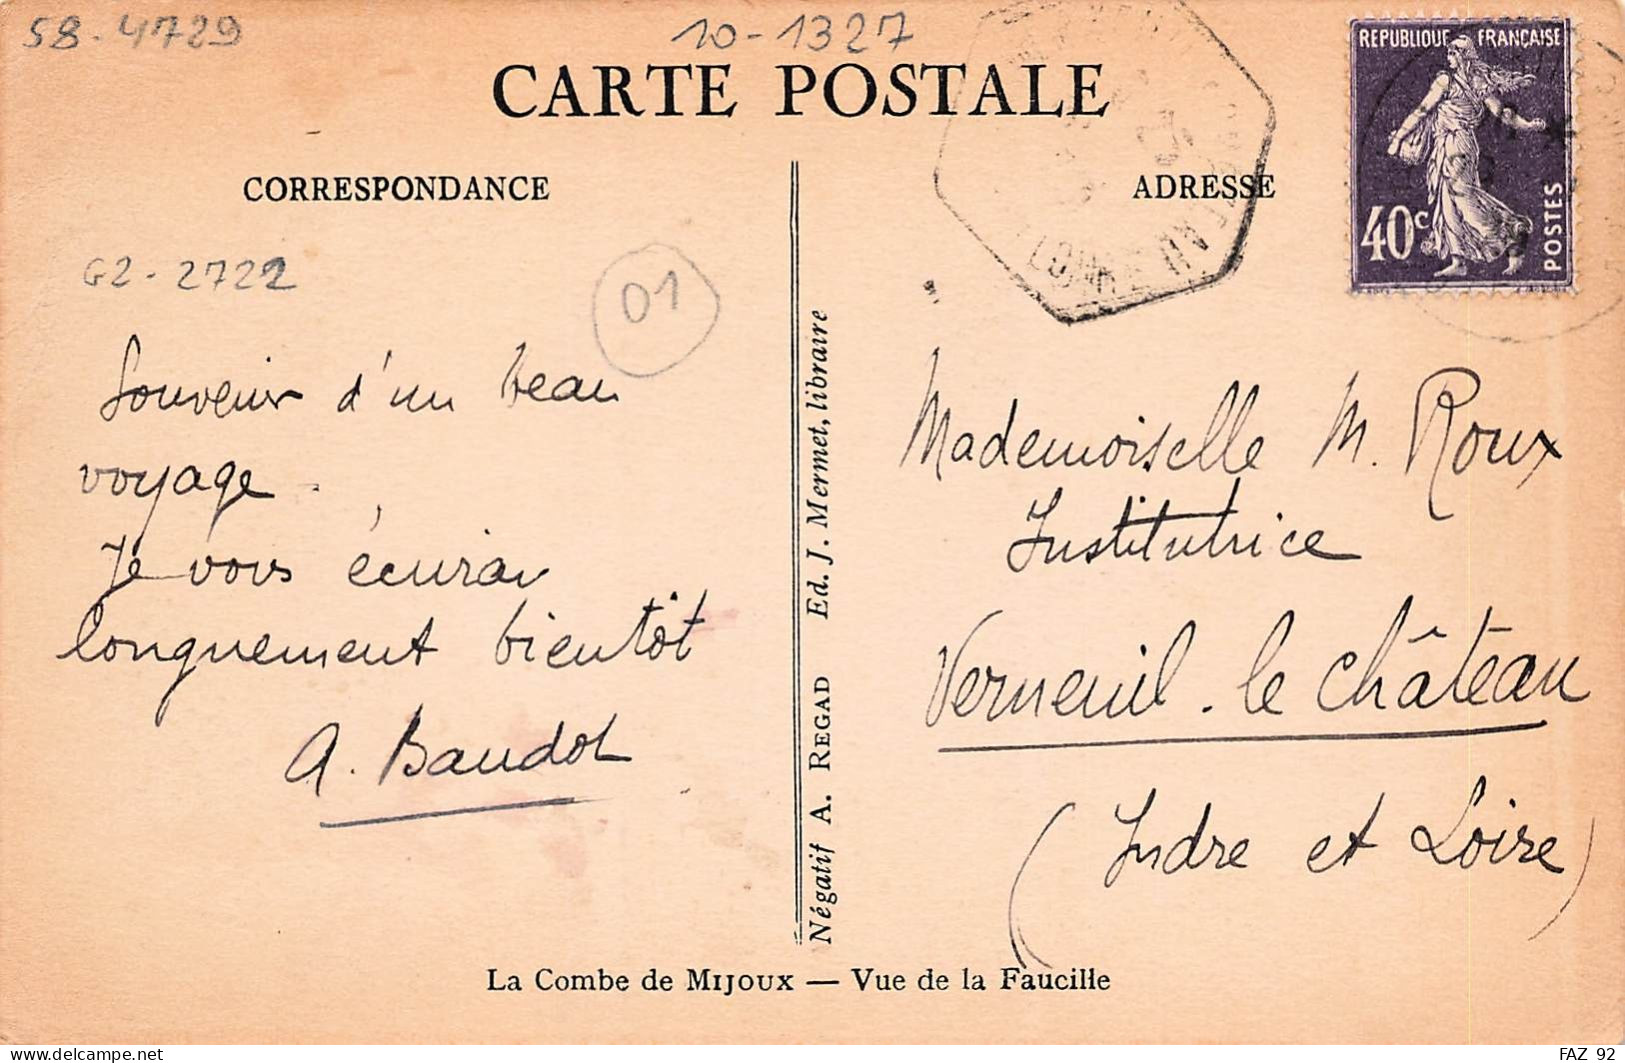 58-4729
10-1327
CARTE POSTALE
CORRESPONDANCE
ADRESSE
REPUBLIQUE FRANÇAISE
40c
POSTES
62-2722
01
Souvenir d'un beau
voyage.
Je vous écrirai
longuement bientôt
A. Baudot
Négatif A. REGAD Ed. J. Mermet, libraire
Mademoiselle M. Roux
Institutrice
Verneuil-le château
(Indre et Loire)
La Combe de MIJOUX — Vue de la Faucille
FAZ 92